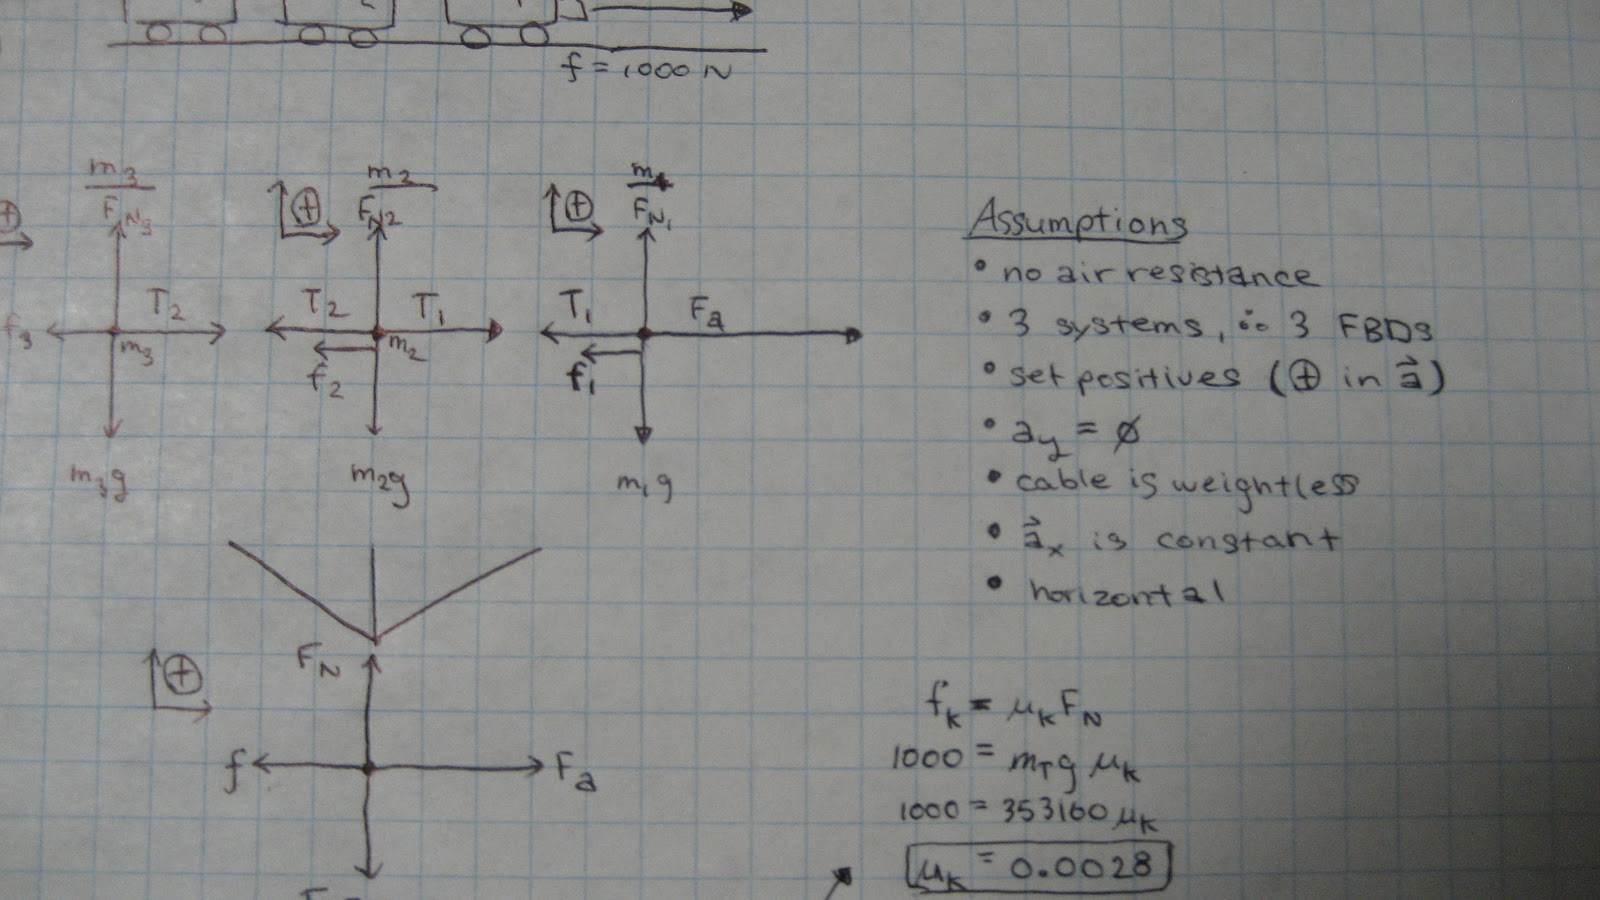 f = 1000 N
m3
m2
m1
FN3
FN2
FN1
⊕
⊕
⊕
f3
T2
T2
T1
T1
Fa
m3
m2
f2
f1
m3g
m2g
m1g
Assumptions
• no air resistance
• 3 systems, ∴ 3 FBDs
• set positives (⊕ in a⃗)
• ay = ∅
• cable is weightless
• a⃗x is constant
• horizontal
⊕
FN
f
Fa
fK = μKFN
1000 = mTg μK
1000 = 353160 μK
μK = 0.0028